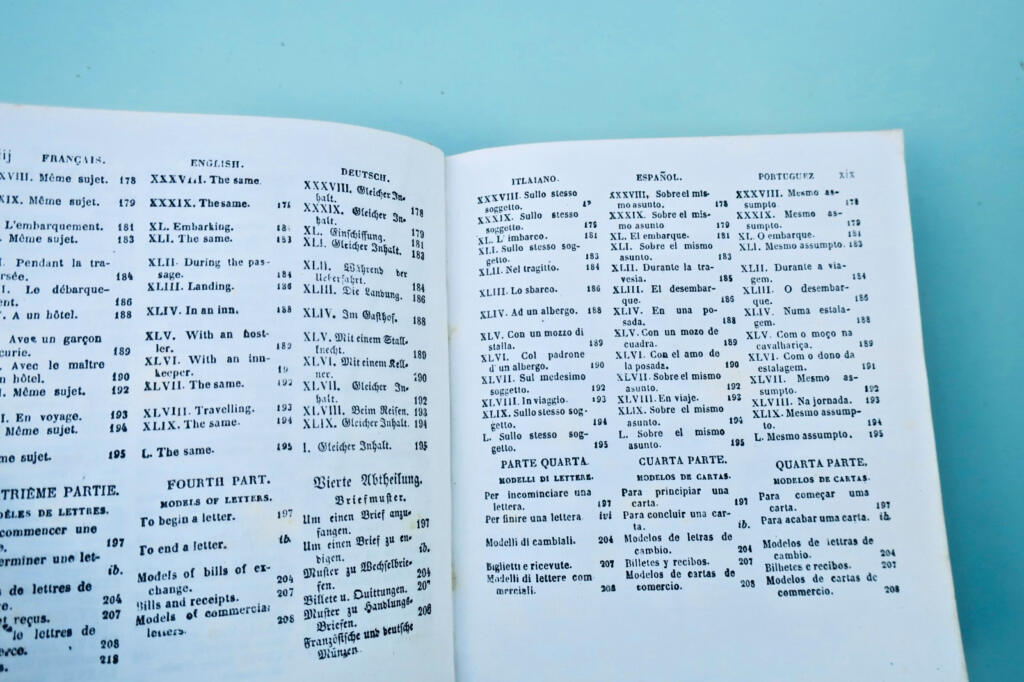 ij FRANÇAIS.
XVIII. Même sujet. 178
XIX. Même sujet. 179
L'embarquement. 181
Même sujet. 183
I. Pendant la tra-
ersée. 184
I. Le débarque-
ent. 186
V. A un hôtel. 188
Avec un garçon
curie. 189
. Avec le maître
n hôtel. 190
n même sujet. 192
I. En voyage. 193
Même sujet. 194
ême sujet. 195
TRIÈME PARTIE.
DÈLES DE LETTRES.
commencer une
e. 197
erminer une let-
ib.
de lettres de
re. 204
et reçus. 207
de lettres de
erce. 208
s. 218
ENGLISH.
XXXVIII. The same.
XXXIX. The same. 17
XL. Embarking. 18
XLI. The same. 183
XLII. During the pas-
sage. 184
XLIII. Landing. 186
XLIV. In an inn. 188
XLV. With an host-
ler. 189
XLVI. With an inn-
keeper. 19
XLVII. The same. 192
XLVIII. Travelling. 193
XLIX. The same. 194
L. The same. 195
FOURTH PART.
MODELS OF LETTERS.
To begin a letter. 197
To end a letter. ib.
Models of bills of ex-
change. 204
Bills and receipts. 207
Models of commercial
letters. 208
DEUTSCH.
XXXVIII. Gleicher In-
halt. 178
XXXIX. Gleicher In-
halt. 179
XL. Einschiffung. 181
XLI. Gleicher Inhalt. 183
XLII. Während der
Ueberfahrt. 184
XLIII. Die Landung. 186
XLIV. Im Gasthof. 188
XLV. Mit einem Stall-
knecht. 189
XLVI. Mit einem Kell-
ner. 190
XLVII. Gleicher In-
halt. 192
XLVIII. Beim Reisen. 193
XLIX. Gleicher Inhalt. 194
I. Gleicher Inhalt. 195
Vierte Abtheilung.
Briefmuster.
Um einen Brief anzu-
fangen. 197
Um einen Brief zu en-
digen. ib.
Muster zu Wechselbrie-
fen. 204
Billete u. Quittungen. 207
Muster zu Handlungs-
Briefen. 208
Französische und deutsche
Münzen.
ITLAIANO.
XXXVIII. Sullo stesso
soggetto.
XXXIX. Sullo stesso
soggetto. 179
XL. L' imbarco. 181
XLI. Sullo stesso sog-
getto. 183
XLII. Nel tragitto. 184
XLIII. Lo sbarco. 186
XLIV. Ad un albergo. 188
XLV. Con un mozzo di
stalla. 189
XLVI. Col padrone
d'un albergo. 190
XLVII. Sul medesimo
soggetto. 192
XLVIII. In viaggio. 193
XLIX. Sullo stesso sog-
getto. 194
L. Sullo stesso sog-
getto. 195
PARTE QUARTA.
MODELLI DI LETTERE.
Per incominciare una
lettera. 197
Per finire una lettera ivi
Modelli di cambiali. 204
Biglietti e ricevute. 207
Modelli di lettere com
merciali. 208
ESPAÑOL.
XXXVIII, Sobre el mis-
mo asunto. 178
XXXIX. Sobre el mis-
mo asunto 179
XL. El embarque. 181
XLI. Sobre el mismo
asunto. 183
XLII. Durante la tra-
vesia. 185
XLIII. El desembar-
que. 186
XLIV. En una po-
sada. 188
XLV. Con un mozo de
cuadra. 189
XLVI. Con el amo de
la posada. 190
XLVII. Sobre el mismo
asunto. 192
XLVIII. En viaje. 193
XLIX. Sobre el mismo
asunto. 194
L. Sobre el mismo
asunto. 195
CUARTA PARTE.
MODELOS DE CARTAS.
Para principiar una
carta. 197
Para concluir una car-
ta. ib.
Modelos de letras de
cambio. 204
Billetes y recibos. 207
Modelos de cartas de
comercio. 208
PORTUGUEZ xix
XXXVIII. Mesmo as-
sumpto. 178
XXXIX. Mesmo as-
sumpto. 179
XL. O embarque. 181
XLI. Mesmo assumpto. 183
XLII. Durante a via-
gem. 184
XLIII. O desembar-
que. 186
XLIV. Numa estala-
gem. 188
XLV. Com o moço na
cavalhariça. 189
XLVI. Com o dono da
estalagem. 191
XLVII. Mesmo as-
sumpto. 192
XLVIII. Na jornada. 193
XLIX. Mesmo assump-
to. 194
L. Mesmo assumpto. 195
QUARTA PARTE.
MODELOS DE CARTAS.
Para começar uma
carta. 197
Para acabar uma carta. ib.
Modelos de letras de
cambio. 204
Bilhetes e recibos. 207
Modelos de cartas de
commercio. 208